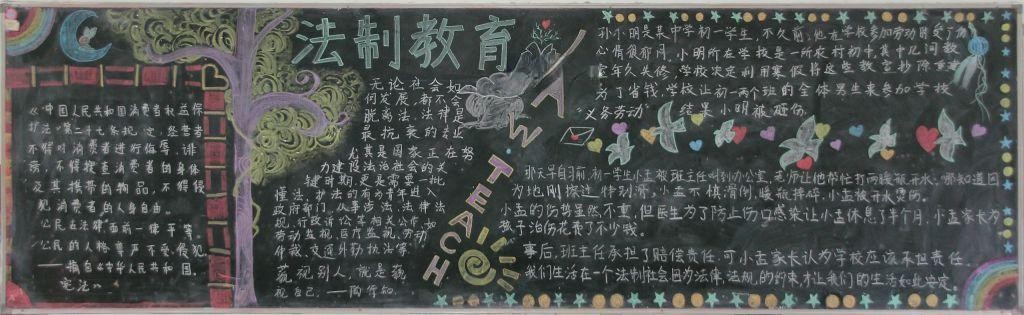 法制教育
《中国人民共和国消费者权益保
护法》第二十七条规定,经营者
不得对消费者进行侮辱、诽
谤,不得搜查消费者的身体
及其携带的物品,不得侵
犯消费者的人身自由。
公民在法律面前一律平等,
公民的人格尊严不受侵犯
——摘自《中华人民共和国
宪法》
无论社会如
何发展,都不会
脱离法,法律是
最抗衰的专业
尤其是国家正在努
力建设法治社会的关
键时期,更是需要一批
懂法、执法的有识者进入
政府部门,从事涉及法律法
规、行政诉讼等相关公作,如
劳动监视、医疗监视、劳动
仲裁、交通外勤执法等
藐视别人,就是藐
视自己。——陶行知
LAW·TEACH
孙小明是某中学初一学生,不久前,他在学校参加劳动时受了伤
心情很郁闷,小明所在学校是一所农村初中,其中几间教
室年久失修,学校决定利用寒假将这些教室拆除重建
为了省钱,学校让初一两个班的全体男生来参加学校
“义务劳动” 结果小明被砸伤
那天早自习前,初一学生小孟被班主任叫到办公室,老师让他帮忙打两暖瓶开水,哪知道因
为地刚擦过特别滑,小孟不慎滑倒,暖瓶摔碎,小孟被开水烫伤。
小孟的伤势虽然不重,但医生为了防止伤口感染让小孟休息了半个月,小孟家长为
孩子治伤花费了不少钱。
事后,班主任承担了赔偿责任,可小孟家长认为学校应该承担责任。
我们生活在一个法制社会因为法律,法规的约束,才让我们的生活如此安定。